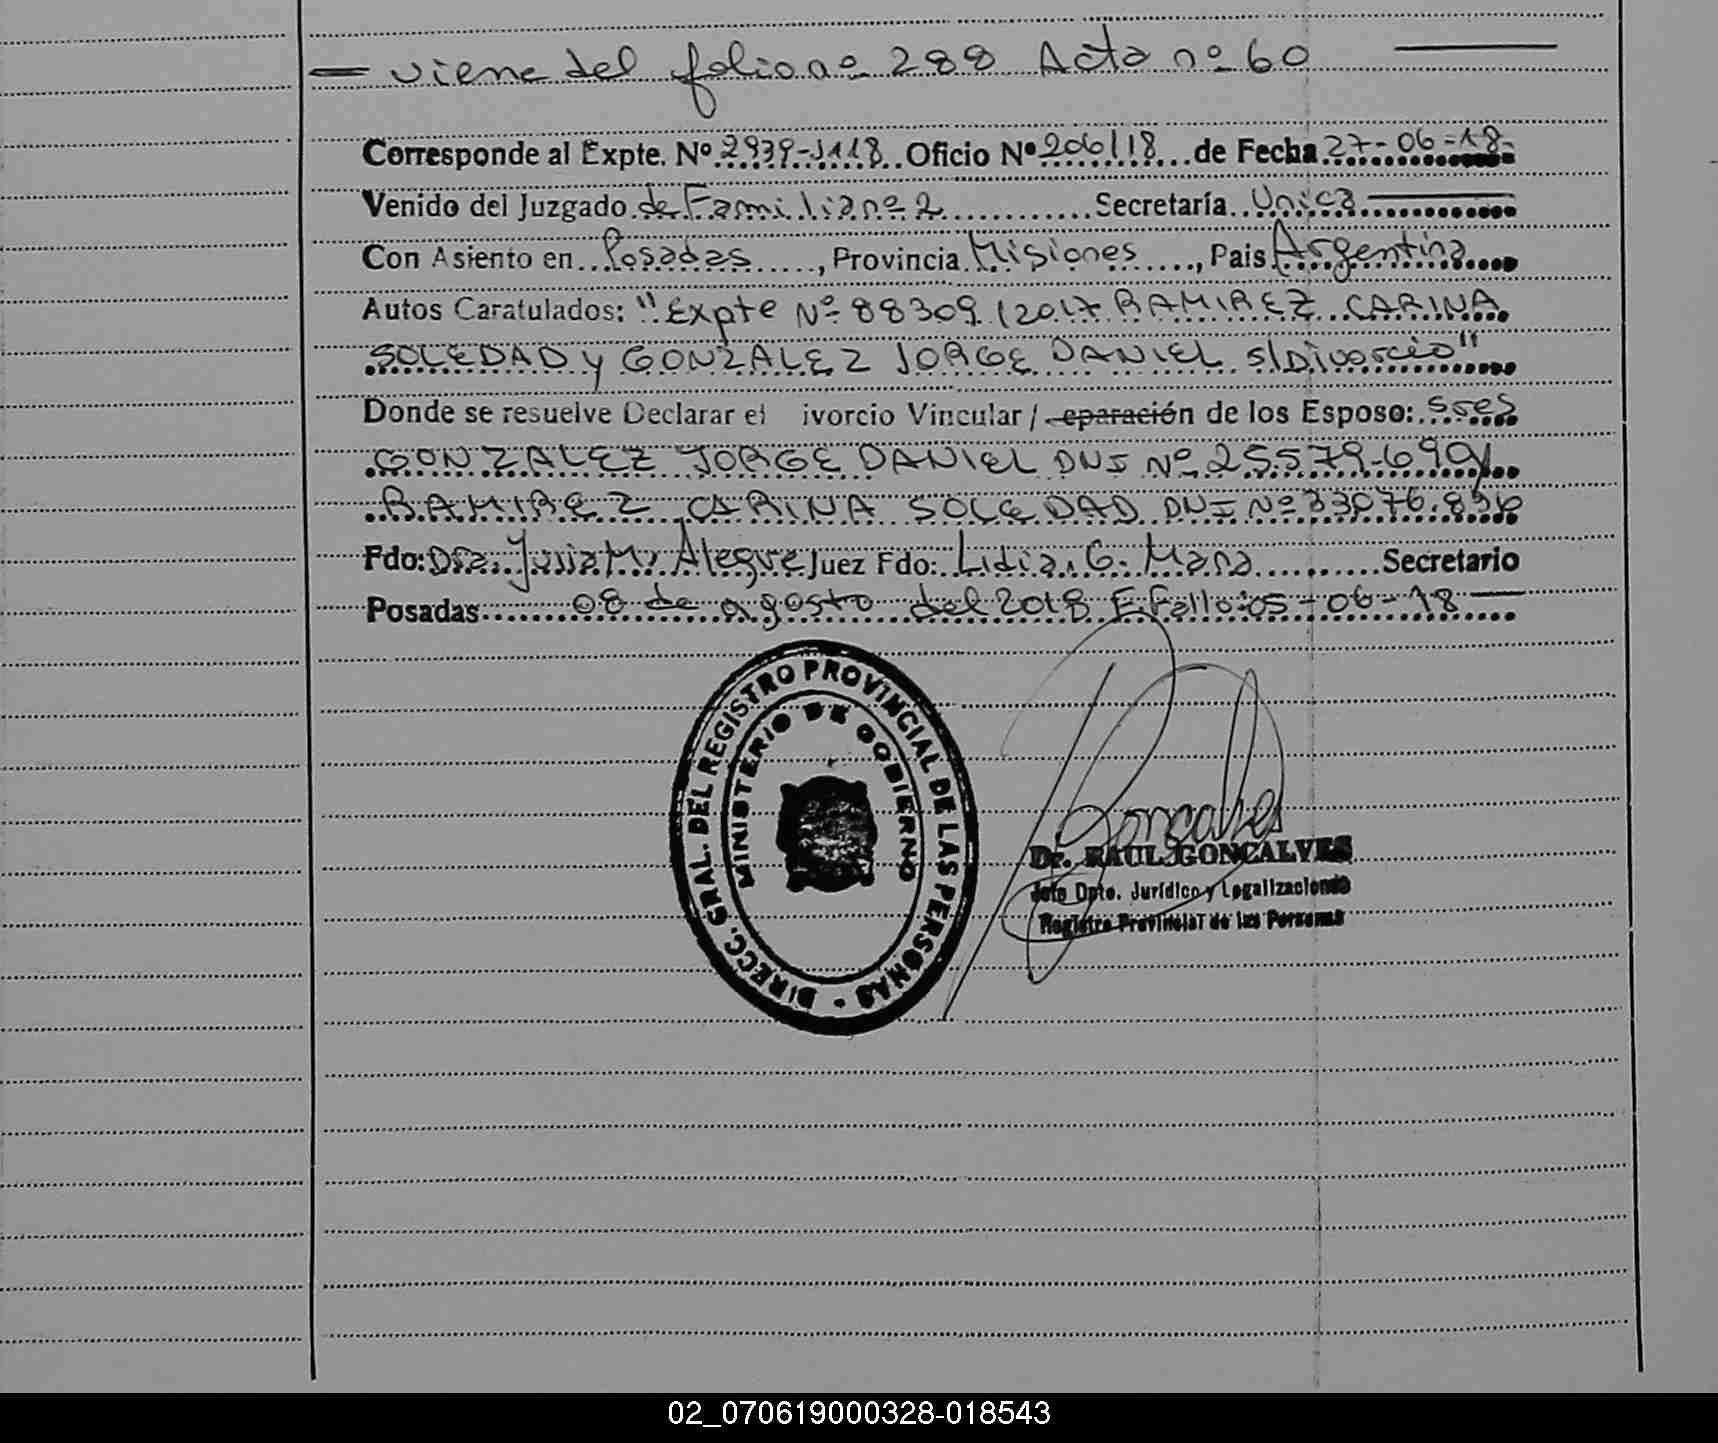 — viene del folio nº 288 Acta nº 60 —
Corresponde al Expte. Nº 2939-J118 Oficio Nº 206/18 de Fecha 27-06-18-
Venido del Juzgado de Familia nº 2 Secretaría Unica —
Con Asiento en Posadas, Provincia Misiones, Pais Argentina
Autos Caratulados: "Expte Nº 88309/2017 RAMIREZ CARINA
SOLEDAD y GONZALEZ JORGE DANIEL s/Divorcio"
Donde se resuelve Declarar el ivorcio Vincular / eparación de los Esposo: sres
GONZALEZ JORGE DANIEL DNI Nº 25579.699 y
RAMIREZ CARINA SOLEDAD DNI Nº 33076.836
Fdo: Dra. M. Alegre Juez Fdo: Lidia G. Secretario
Posadas 08 de agosto del 2018 F. Fallo: 05-06-18 —
DIRECC. GRAL. DEL REGISTRO PROVINCIAL DE LAS PERSONAS
MINISTERIO DE GOBIERNO
Goncalves
Dr. RAUL GONCALVES
Jefe Dpto. Jurídico y Legalizaciones
Registro Provincial de las Personas
02_070619000328-018543